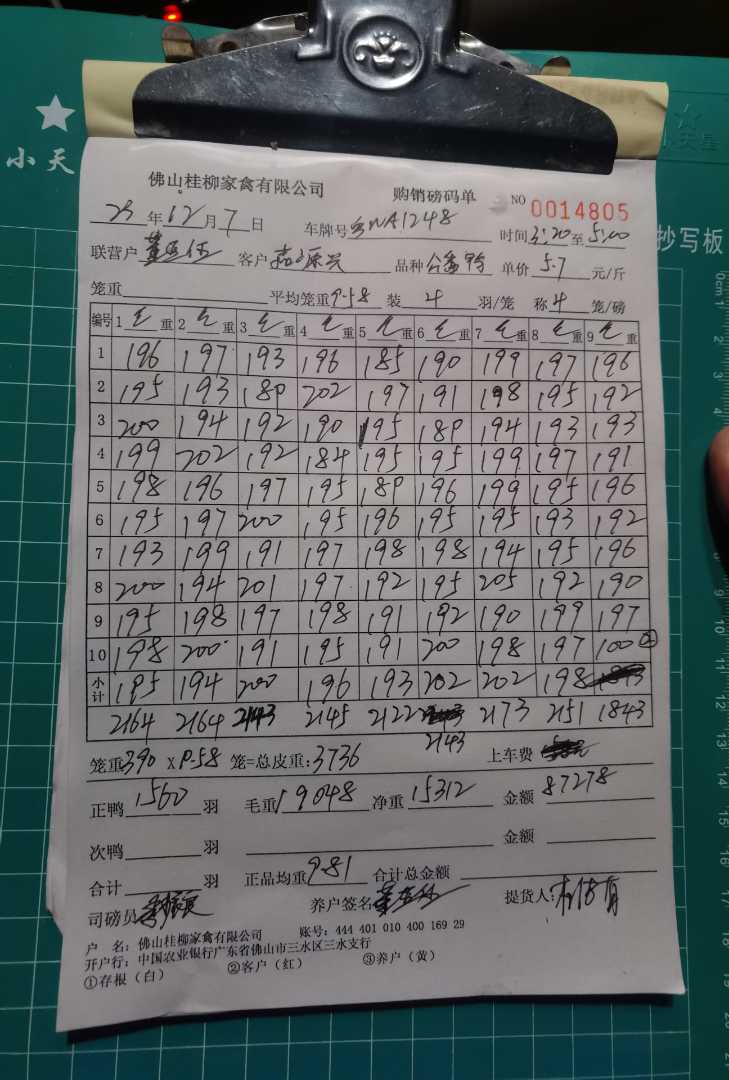 小天
小天星
抄写板
佛山桂柳家禽有限公司 购销磅码单 NO 0014805
25年12月7日 车牌号 WA1248 时间3:20至5:00
联营户 客户 品种 单价 5.7 元/斤
笼重 平均笼重9.58 装 4 羽/笼 称 4 笼/磅
编号 1 毛重 2 毛重 3 毛重 4 毛重 5 毛重 6 毛重 7 毛重 8 毛重 9 毛重
1 196 197 193 196 185 190 199 197 196
2 195 193 189 202 197 191 198 195 192
3 200 194 192 190 195 189 194 193 193
4 199 202 192 184 195 195 199 197 191
5 198 196 197 195 189 196 199 195 196
6 195 197 200 195 196 195 195 193 192
7 193 199 191 197 198 198 194 195 196
8 200 194 201 197 192 195 205 192 190
9 195 198 197 198 191 192 190 199 197
10 198 200 191 195 191 200 198 197 100 ②
小计 195 194 200 196 193 202 202 198
2164 2164 2143 2145 2122 2173 2151 1843
2143
笼重390 x 9.58 笼=总皮重:3736 上车费
正鸭 1560 羽 毛重 19048 净重 15312 金额 87278
次鸭 羽 金额
合计 羽 正品均重 9.81 合计总金额
司磅员 养户签名 提货人:
户 名:佛山桂柳家禽有限公司 账号:444 401 010 400 169 29
开户行:中国农业银行广东省佛山市三水区三水支行
①存根(白) ②客户(红) ③养户(黄)
0cm 1
2
3
4
5
9
10
11
12
13
14
15
16
17
18
19
20
21